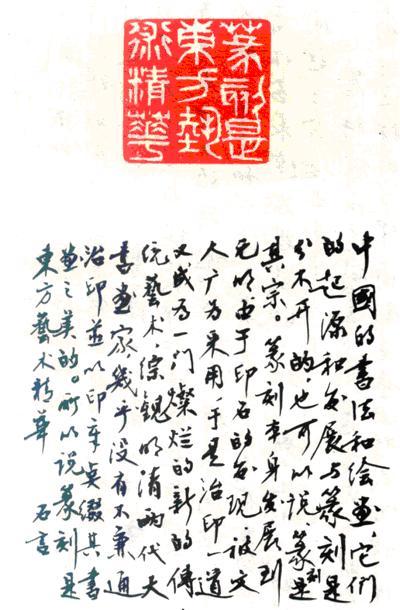 篆刻是
東方藝
術精華
中國的书法和绘画,它们
的起源和发展与篆刻是
分不开的,也可以说篆刻是
其宗。篆刻本身发展到
元明由于印石的发现被文
人广为采用,于是治印一道
又成为一门燦烂的新的傳
统藝术,综觀明清兩代大
书画家幾乎没有不兼通
治印並以印章点缀其书
画之美的。所以说篆刻是
東方藝术精華 石言